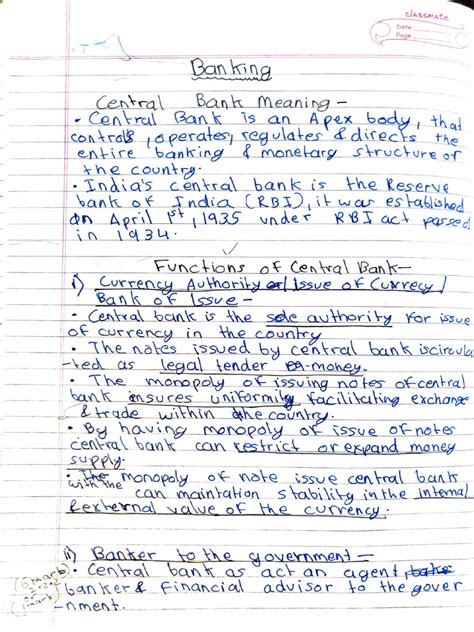 classmate
Date
Page
Banking
Central Bank Meaning -
• Central Bank is an Apex body, that
controls, operates, regulates & directs the
entire banking & monetary structure of
the country.
• India's central bank is the Reserve
bank of India (RBI), it was established
on April 1st, 1935 under RBI act passed
in 1934.
Functions of Central Bank-
i) Currency Authority or/ Issue of Currecy/
Bank of Issue -
• Central bank is the sole authority for issue
of currency in the country
• The notes issued by central bank is circula
-ted as legal tender money.
• The monopoly of issuing notes of central
bank ensures uniformity, facilitating exchange
& trade within the country.
• By having monopoly of issue of notes
central bank can restrict or expand money
supply.
• with the monopoly of note issue central bank
can maintation stability in the internal
& external value of the currency.
ii) Banker to the government -
• Central bank as act an agent,
banker & financial advisor to the gover
-nment.